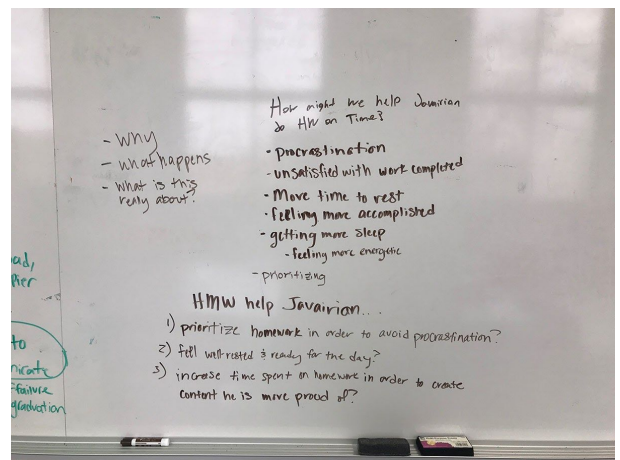 How might we help Javairian
do HW on Time?
- Why
- what happens
- What is this
really about?
• procrastination
- unsatisfied with work completed
• Move time to rest
• feeling more accomplished
- getting more sleep
- feeling more energetic
- prioritizing
HMW help Javairian...
1) prioritize homework in order to avoid procrastination?
2) feel well-rested & ready for the day?
3) increase time spent on homework in order to create
content he is more proud of?
to
failure
graduation